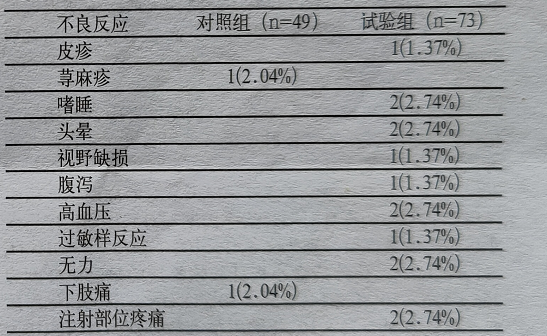 不良反应 对照组（n=49） 试验组（n=73）
皮疹 1(1.37%)
荨麻疹 1(2.04%)
嗜睡 2(2.74%)
头晕 2(2.74%)
视野缺损 1(1.37%)
腹泻 1(1.37%)
高血压 2(2.74%)
过敏样反应 1(1.37%)
无力 2(2.74%)
下肢痛 1(2.04%)
注射部位疼痛 2(2.74%)